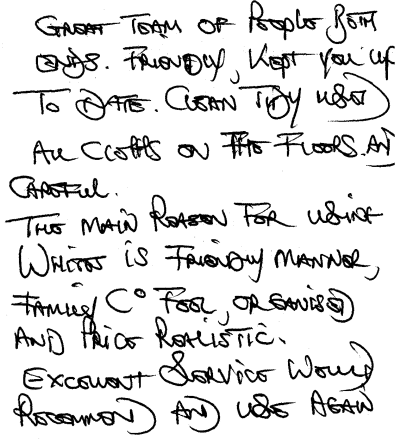 GREAT TEAM OF PEOPLE BOTH
ENDS. FRIENDLY, KEPT YOU UP
TO DATE. CLEAN TIDY USED
ALL CLOTHS ON THE FLOORS. AND
CAREFUL.
THE MAIN REASON FOR USING
WHITES IS FRIENDLY MANNER,
FAMILY Cº FEEL, ORGANISED
AND PRICE REALISTIC.
EXCELLENT SERVICE WOULD
RECOMMEND AND USE AGAIN